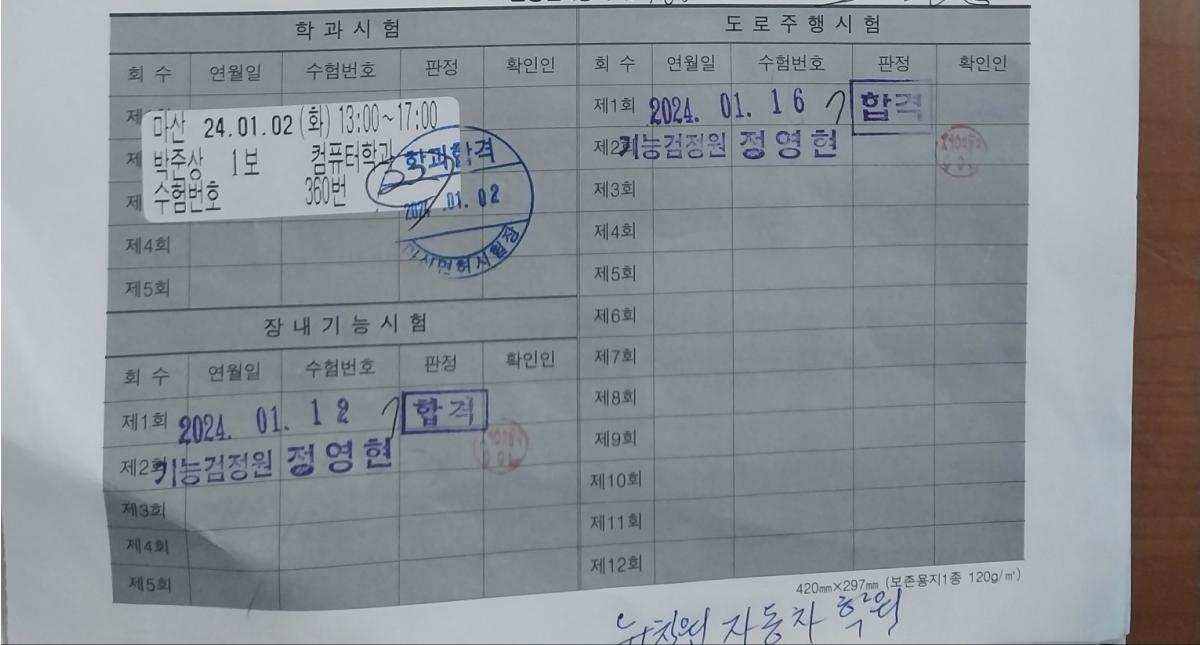 학과시험
회 수 연월일 수험번호 판정 확인인
마산 24.01.02 (화) 13:00~17:00
박준상 1보 컴퓨터학과
수험번호 360번
학과합격
2024 .01. 02
마산면허시험장
제4회
제5회
장내기능시험
회 수 연월일 수험번호 판정 확인인
제1회 2024. 01. 12 합격
제2회 기능검정원 정영현
제3회
제4회
제5회
도로주행시험
회 수 연월일 수험번호 판정 확인인
제1회 2024. 01. 16 합격
제2회 기능검정원 정영현
제3회
제4회
제5회
제6회
제7회
제8회
제9회
제10회
제11회
제12회
420㎜×297㎜ (보존용지1종 120g/㎡)
뉴창원 자동차 학원